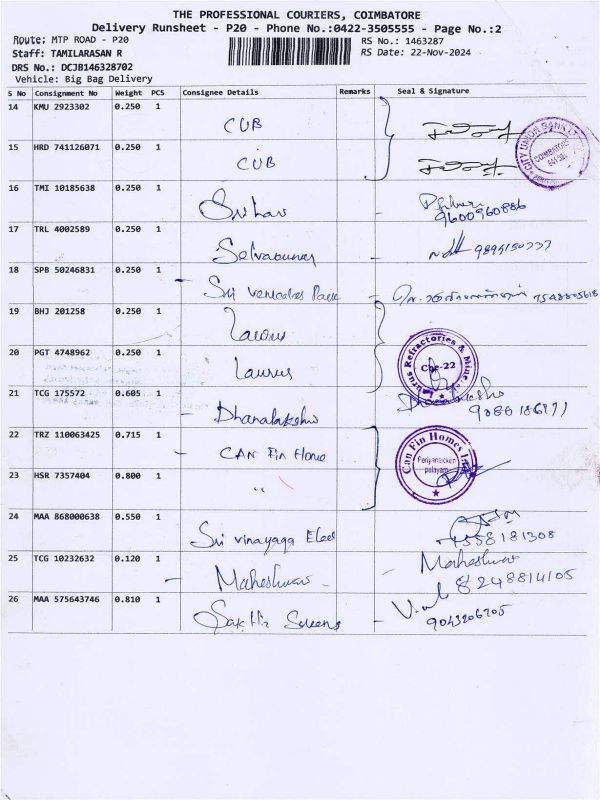 THE PROFESSIONAL COURIERS, COIMBATORE
Delivery Runsheet - P20 - Phone No.:0422-3505555 - Page No.:2
Route: MTP ROAD - P20
RS No.: 1463287
Staff: TAMILARASAN R
RS Date: 22-Nov-2024
DRS No.: DCJB146328702
Vehicle: Big Bag Delivery
S No Consignment No Weight PCS Consignee Details Remarks Seal & Signature
14 KMU 2923302 0.250 1 CUB
15 HRD 741126071 0.250 1 CUB
CITY UNION BANK
COIMBATORE
16 TMI 10185638 0.250 1
9600960886
17 TRL 4002589 0.250 1 Selvakumar
18 SPB 50246831 0.250 1 Sri
19 BHJ 201258 0.250 1 Laurus
20 PGT 4748962 0.250 1 Laurus
Laurus Refractories & Minerals
Cbe-22
21 TCG 175572 0.605 1 Dhanalakshmi
22 TRZ 110063425 0.715 1 CAN Fin Home
Can Fin Homes
Periyanaicken
palayam
23 HSR 7357404 0.800 1 "
24 MAA 868000638 0.550 1 Sri vinayaga Elect
25 TCG 10232632 0.120 1 Maheshwar
Maheshwar
8248814105
26 MAA 575643746 0.810 1 Sakthi Screens